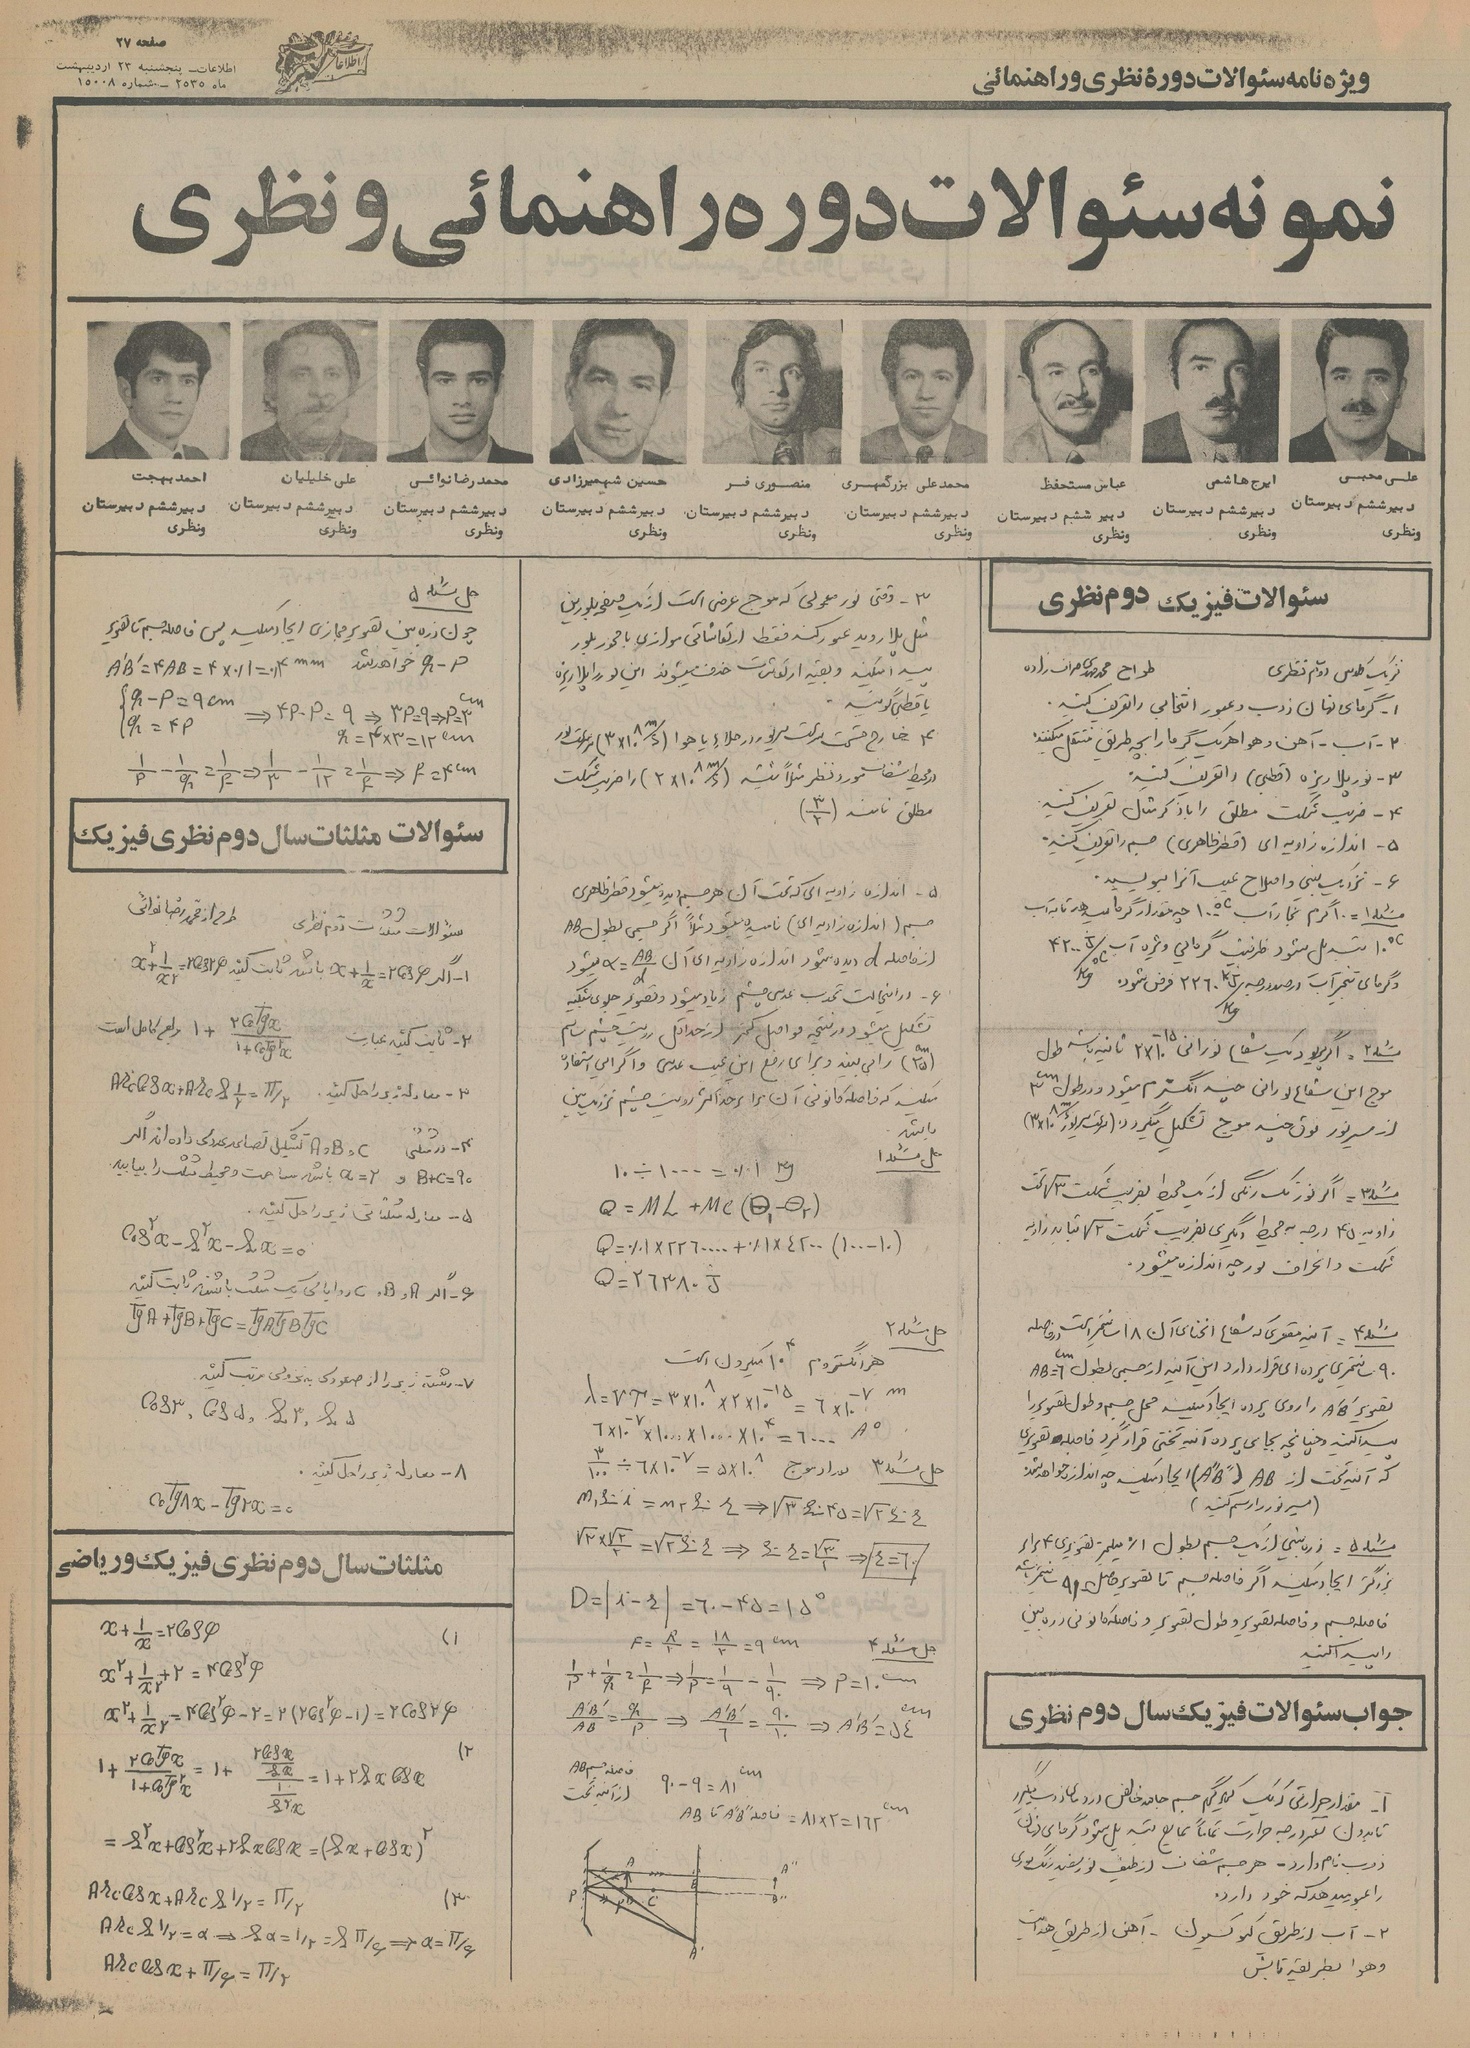 صفحه ۲۷
اطلاعات ـ پنجشنبه ۲۳ اردیبهشت
ماه ۲۵۳۵ ـ شماره ۱۵۰۰۸
اطلاعات
ویژه نامه سئوالات دورهٔ نظری و راهنمائی
نمونه سئوالات دوره راهنمائی و نظری
علی محبی
دبیر ششم دبیرستان
ونظری
ایرج هاشمی
دبیر ششم دبیرستان
ونظری
عباس مستحفظ
دبیر ششم دبیرستان
ونظری
محمدعلی بزرگمهری
دبیر ششم دبیرستان
ونظری
منصوری فر
دبیر ششم دبیرستان
ونظری
حسین شهمیرزادی
دبیر ششم دبیرستان
ونظری
محمدرضا نوائی
دبیر ششم دبیرستان
ونظری
علی خلیلیان
دبیر ششم دبیرستان
ونظری
احمد بهجت
دبیر ششم دبیرستان
ونظری
سئوالات فیزیک دوم نظری
فیزیک کلاس دوم نظری طراح محمدمهدی
۱- گرمای نهان ذوب و عبور انتخابی را تعریف کنید.
۲- آب - آهن و هوا هریک گرما را بچه طریق منتقل میکنند؟
۳- نور پلاریزه (قطبی) را تعریف کنید.
۴- ضریب شکست مطلق را با ذکر مثال تعریف کنید.
۵- اندازه زاویه ای (قطر ظاهری) جسم را تعریف کنید.
۶- نزدیک بینی و اصلاح عیب آنرا بنویسید.
مسئله ۱ = ۱۰ گرم بخار آب ۱۰۰°C چه مقدار گرما میدهد تا به آب
۱۰°C تبدیل شود ظرفیت گرمائی ویژه آب ۴۲۰۰ J/kg°C
و گرمای تبخیر آب در صد درجه ۲۲۶۰ kJ/kg فرض شود.
مسئله ۲ = اگر پریود یک شعاع نورانی ۲×۱۰⁻¹⁵ ثانیه باشد طول
موج این شعاع نورانی چند انگسترم میشود و در طول ۳ cm
از مسیر نور فوق چند موج تشکیل میگردد. (سرعت سیر نور ۳×۱۰⁸ m/s)
مسئله ۳ = اگر نور تک رنگی از یک محیط بضریب شکست √۳ تحت
زاویه ۴۵ درجه به محیط دیگری بضریب شکست √۲ بتابد زاویه
شکست و انحراف نور چه اندازه میشود.
مسئله ۴ = آئینه مقعری که شعاع انحنای آن ۱۸ سانتیمتر است در فاصله
۹۰ سانتیمتری پرده ای قرار دارد این آئینه از جسمی بطول AB=۶ cm
تصویر A'B' را روی پرده ایجاد میکند محل جسم و طول تصویر را
پیدا کنید و چنانچه بجای پرده آئینه تختی قرار گیرد فاصله تصویری
که آئینه تخت از AB (A"B") ایجاد میکند چه اندازه خواهد شد.
(مسیر نور را رسم کنید)
مسئله ۵ = ذره بینی از یک جسم بطول ۰/۱ میلیمتر تصویری ۴ برابر
بزرگتر ایجاد میکند اگر فاصله جسم تا تصویر حاصل ۹ سانتیمتر باشد
فاصله جسم و فاصله تصویر و طول تصویر و فاصله کانونی ذره بین
را پیدا کنید
جواب سئوالات فیزیک سال دوم نظری
۱- مقدار حرارتی که یک کیلوگرم جسم جامد خالص در دمای ذوب میگیرد
تا بدون تغییر درجه حرارت تماماً بمایع تبدیل شود گرمای نهان
ذوب نام دارد - هر جسم شفاف از طیف نور سفید رنگ نوری
را عبور میدهد که خود دارد.
۲- آب از طریق کنوکسیون - آهن از طریق هدایت
و هوا بطریقه تابش
۳- وقتی نور معمولی که موج عرضی است از یک تیغه بلورین
مثل پلاروید عبور کند فقط ارتعاشاتی موازی با محور بلور
پیدا میکند و بقیه ارتعاشات حذف میشوند این نور را پلاریزه
یا قطبی گویند.
۴- خارج قسمت سرعت سیر نور در خلاء یا هوا (۳×۱۰⁸ m/s) بر سرعت نور
در محیط شفاف مورد نظر مثلاً شیشه (۲×۱۰⁸ m/s) را ضریب شکست
مطلق نامند (۳/۲)
۵- اندازه زاویه ای که تحت آن هر جسم دیده میشود قطر ظاهری
جسم (اندازه زاویه ای) نامیده میشود مثلاً اگر جسمی بطول AB
از فاصله d دیده شود اندازه زاویه ای آن α=AB/d میشود
۶- در اینحالت تحدب عدسی چشم زیاد میشود و تصویر جلوی شبکیه
تشکیل میشود در نتیجه فواصل کمتر از حداقل رویت چشم سالم
(۲۵ cm) را می بیند و برای رفع این عیب عدسی واگرایی استفاده
میکنند که فاصله کانونی آن برابر حداکثر رویت چشم نزدیک بین
باشد.
حل مسئله ۱
۱۰ ÷ ۱۰۰۰ = ۰/۰۱ kg
Q = ML + MC (Θ₁-Θ₂)
Q = ۰/۰۱×۲۲۶۰۰۰۰ + ۰/۰۱×۴۲۰۰ (۱۰۰-۱۰)
Q = ۲۶۳۸۰ J
حل مسئله ۲
هر انگستروم ۱۰⁴ میکرون است
λ = VT = ۳×۱۰⁸ × ۲×۱۰⁻¹⁵ = ۶×۱۰⁻⁷ m
۶×۱۰⁻⁷ × ۱۰۰۰ × ۱۰۰۰ × ۱۰⁴ = ۶۰۰۰ A°
حل مسئله ۳ تعداد موج ۳/۱۰۰ ÷ ۶×۱۰⁻⁷ = ۵×۱۰⁸
n₁ Sin i = n₂ Sin r ⇒ √۳ Sin ۴۵ = √۲ Sin r
√۳×√۲/۲ = √۲ Sin r ⇒ Sin r = √۳/۲ ⇒ r = ۶۰
D = |i-r| = ۶۰-۴۵ = ۱۵°
حل مسئله ۴ F = R/۲ = ۱۸/۲ = ۹ cm
۱/P + ۱/q = ۱/F ⇒ ۱/P = ۱/۹ - ۱/۹۰ ⇒ P = ۱۰ cm
A'B'/AB = q/P ⇒ A'B'/۶ = ۹۰/۱۰ ⇒ A'B' = ۵۴ cm
فاصله جسم AB
از آئینه تخت ۹۰-۹ = ۸۱ cm
فاصله A"B" تا AB = ۸۱×۲ = ۱۶۲ cm
A A" P F B C B B" A'
حل مسئله ۵
چون ذره بین تصویر مجازی ایجاد میکند پس فاصله جسم تا تصویر
q-P خواهد شد A'B' = ۴AB = ۴×۰/۱ = ۰/۴ mm
q-P = ۹ cm
q = ۴P ⇒ ۴P-P = ۹ ⇒ ۳P=۹ ⇒ P=۳ cm
q = ۴×۳ = ۱۲ cm
۱/P - ۱/q = ۱/F ⇒ ۱/۳ - ۱/۱۲ = ۱/F ⇒ F = ۴ cm
سئوالات مثلثات سال دوم نظری فیزیک
سئوالات مثلثات دوم نظری طرح از محمدرضا نوائی
۱- اگر x+۱/x = ۲Cosφ باشد ثابت کنید x²+۱/x² = ۲Cos۲φ
۲- ثابت کنید عبارت ۱ + ۲Cotgx/۱+Cotg²x مربع کامل است
۳- معادله زیر را حل کنید. ArcCosx + ArcSin ۱/۲ = π/۲
۴- در مثلثی A و B و C تشکیل تصاعد عددی داده اند اگر
B+C=۹۰ و a=۲ باشد مساحت و محیط مثلث را بیابید.
۵- معادله مثلثاتی زیر را حل کنید.
Cos²x - Sin²x - Sinx = ۰
۶- اگر A و B و C زوایای یک مثلث باشند ثابت کنید
TgA + TgB + TgC = TgATgBTgC
۷- رشته زیر را از صعودی به نزولی مرتب کنید.
Cos۳, Cos۵, Sin۳, Sin۵
۸- معادله زیر را حل کنید.
Cotg۸x - Tg۲x = ۰
مثلثات سال دوم نظری فیزیک و ریاضی
۱) x + ۱/x = ۲Cosφ
x² + ۱/x² + ۲ = ۴Cos²φ
x² + ۱/x² = ۴Cos²φ - ۲ = ۲(۲Cos²φ-۱) = ۲Cos۲φ
۲) ۱ + ۲Cotgx/۱+Cotg²x = ۱ + (۲Cosx/Sinx)/(۱/Sin²x) = ۱+۲Sinx Cosx
= Sin²x + Cos²x + ۲SinxCosx = (Sinx + Cosx)²
۳) ArcCosx + ArcSin ۱/۲ = π/۲
ArcSin ۱/۲ = α ⇒ Sinα = ۱/۲ = Sin π/۶ ⇒ α = π/۶
ArcCosx + π/۶ = π/۲